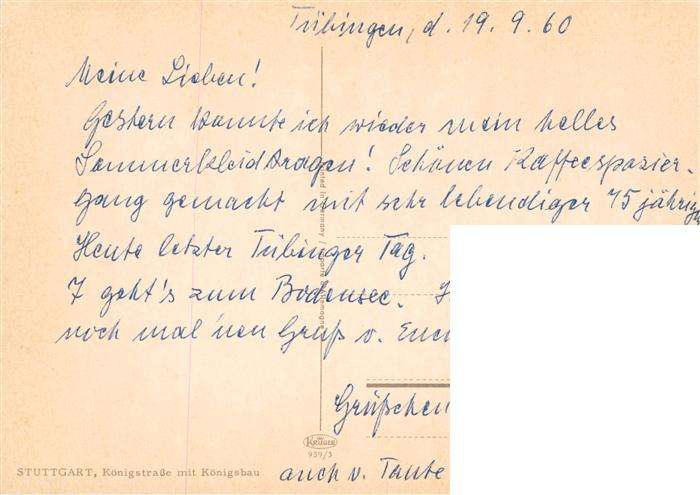 Tübingen, d. 19. 9. 60
Meine Lieben!
Gestern konnte ich wieder mein helles
Sommerkleid tragen! Schönen Kaffeespazier-
gang gemacht mit sehr lebendiger 75 jährig
Heute letzter Tübinger Tag.
7 geht's zum Bodensee.
noch mal 'nen Gruß v. Euch
Grüßchen
auch v. Tante
KRÜGER
959/3
STUTTGART, Königstraße mit Königsbau